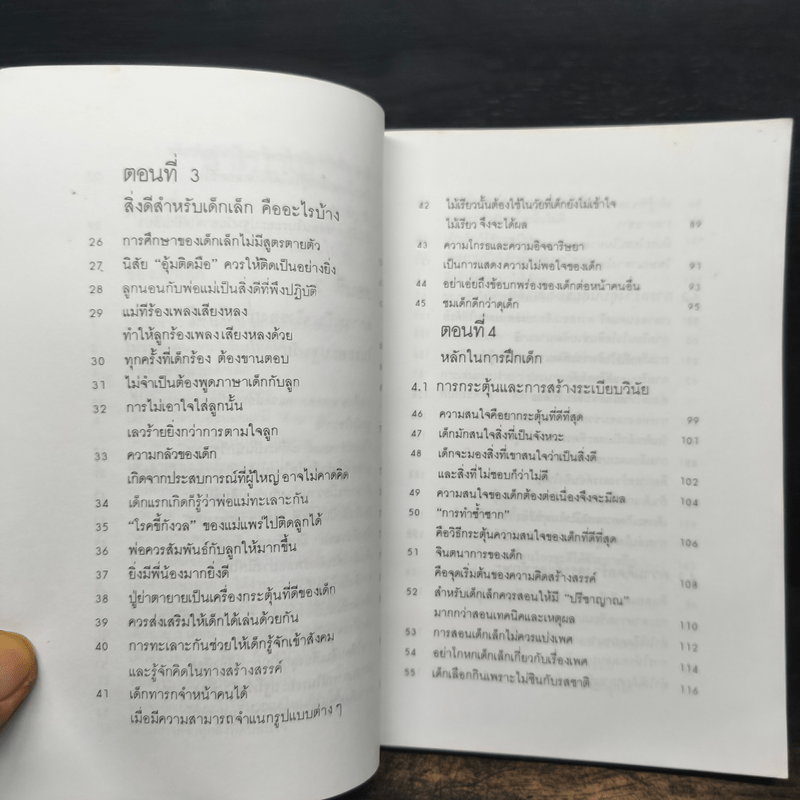 ตอนที่ 3
สิ่งดีสำหรับเด็กเล็ก คืออะไรบ้าง
26 การศึกษาของเด็กเล็กไม่มีสูตรตายตัว
27 นิสัย "อุ้มติดมือ" ควรให้ติดเป็นอย่างยิ่ง
28 ลูกนอนกับพ่อแม่เป็นสิ่งดีที่พึงปฏิบัติ
29 แม่ที่ร้องเพลงเสียงหลง
ทำให้ลูกร้องเพลงเสียงหลงด้วย
30 ทุกครั้งที่เด็กร้อง ต้องขานตอบ
31 ไม่จำเป็นต้องพูดภาษาเด็กกับลูก
32 การไม่เอาใจใส่ลูกนั้น
เลวร้ายยิ่งกว่าการตามใจลูก
33 ความกลัวของเด็ก
เกิดจากประสบการณ์ที่ผู้ใหญ่อาจไม่คาดคิด
34 เด็กแรกเกิดก็รู้ว่าพ่อแม่ทะเลาะกัน
35 "โรคขี้กังวล" ของแม่แพร่ไปติดลูกได้
36 พ่อควรสัมพันธ์กับลูกให้มากขึ้น
37 ยิ่งมีพี่น้องมากยิ่งดี
38 ปู่ย่าตายายเป็นเครื่องกระตุ้นที่ดีของเด็ก
39 ควรส่งเสริมให้เด็กได้เล่นด้วยกัน
40 การทะเลาะกันช่วยให้เด็กรู้จักเข้าสังคม
และรู้จักคิดในทางสร้างสรรค์
41 เด็กทารกจำหน้าคนได้
เมื่อมีความสามารถจำแนกรูปแบบต่าง ๆ
42 ไม้เรียวนั้นต้องใช้ในวัยที่เด็กยังไม่เข้าใจ
ไม้เรียว จึงจะได้ผล 89
43 ความโกรธและความอิจฉาริษยา
เป็นการแสดงความไม่พอใจของเด็ก 91
44 อย่าเอ่ยถึงข้อบกพร่องของเด็กต่อหน้าคนอื่น 93
45 ชมเด็กดีกว่าดุเด็ก 95
ตอนที่ 4
หลักในการฝึกเด็ก
4.1 การกระตุ้นและการสร้างระเบียบวินัย
46 ความสนใจคือยากระตุ้นที่ดีที่สุด 99
47 เด็กมักสนใจสิ่งที่เป็นจังหวะ 101
48 เด็กจะมองสิ่งที่เขาสนใจว่าเป็นสิ่งดี
และสิ่งที่ไม่ชอบก็ว่าไม่ดี 102
49 ความสนใจของเด็กต้องต่อเนื่องจึงจะมีผล 104
50 "การทำซ้ำซาก"
คือวิธีกระตุ้นความสนใจของเด็กที่ดีที่สุด 106
51 จินตนาการของเด็ก
คือจุดเริ่มต้นของความคิดสร้างสรรค์ 108
52 สำหรับเด็กเล็กควรสอนให้มี "ปรีชาญาณ"
มากกว่าสอนเทคนิคและเหตุผล 110
53 การสอนเด็กเล็กไม่ควรแบ่งเพศ 112
54 อย่าโกหกเด็กเล็กเกี่ยวกับเรื่องเพศ 114
55 เด็กเลือกกินเพราะไม่ชินกับรสชาติ 116